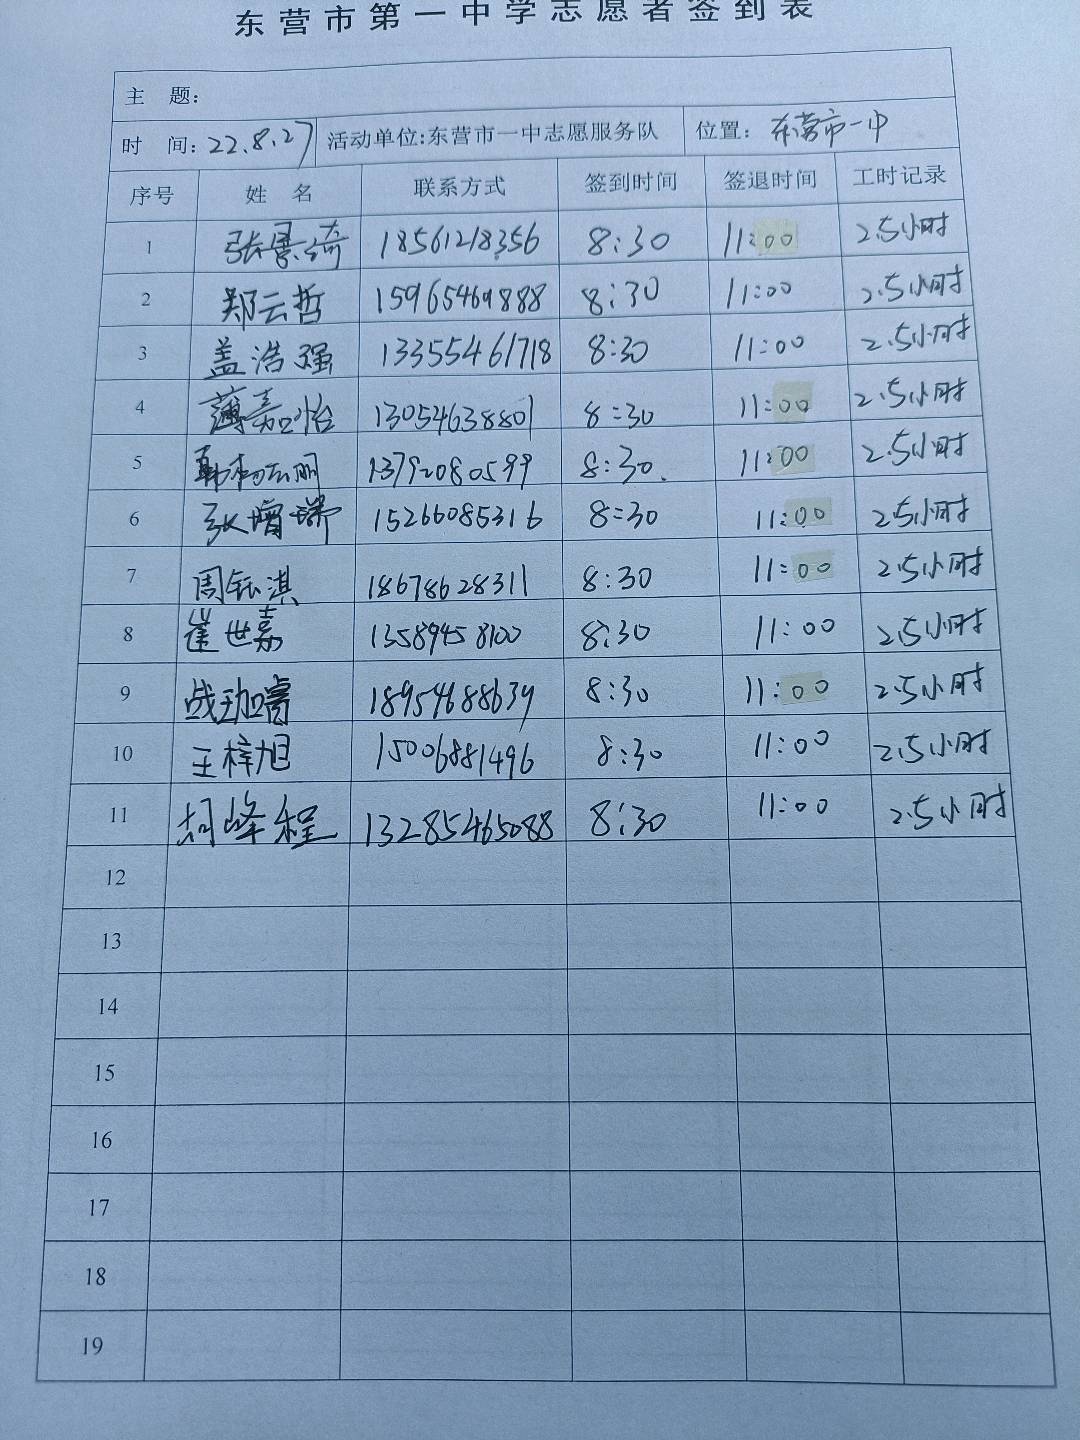 东营市第一中学志愿者签到表
主 题：
时 间：22.8.27 活动单位：东营市一中志愿服务队 位置：东营市一中
序号 姓 名 联系方式 签到时间 签退时间 工时记录
1 张景琦 18561218356 8:30 11:00 2.5小时
2 郑云哲 15965469888 8:30 11:00 2.5小时
3 盖浩强 13355461718 8:30 11:00 2.5小时
4 薄嘉怡 13054638801 8:30 11:00 2.5小时
5 13792080599 8:30. 11:00 2.5小时
6 张增瑞 15266085316 8:30 11:00 2.5小时
7 周钰淇 18678628311 8:30 11:00 2.5小时
8 崔世嘉 13589458100 8:30 11:00 2.5小时
9 18954688639 8:30 11:00 2.5小时
10 王梓旭 15006881496 8:30 11:00 2.5小时
11 峰程 13285465088 8:30 11:00 2.5小时
12
13
14
15
16
17
18
19